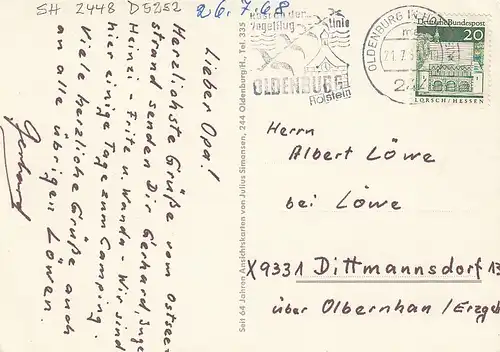 SH 2448 D5252
26.7.68
Lieber Opa!
Herzlichste Grüße vom Ostsee-
strand senden Dir Gerhard, Inge
Heinzi - Frite u. Wanda - Wir sind
hier einige Tage zum Camping.
Viele herzliche Grüße auch
an alle übrigen Löwen.
Gerhard
Seit 64 Jahren Ansichtskarten von Julius Simonsen, 244 Oldenburg/H., Tel. 335
Küsten der
Vogelflug
linie
OLDENBURG
Holstein
OLDENBURG
21.7.
Deutsche Bundespost
20
LORSCH/HESSEN
Herrn
Albert Löwe
bei Löwe
X9331 Dittmannsdorf 13
über Olbernhau/Erzgeb